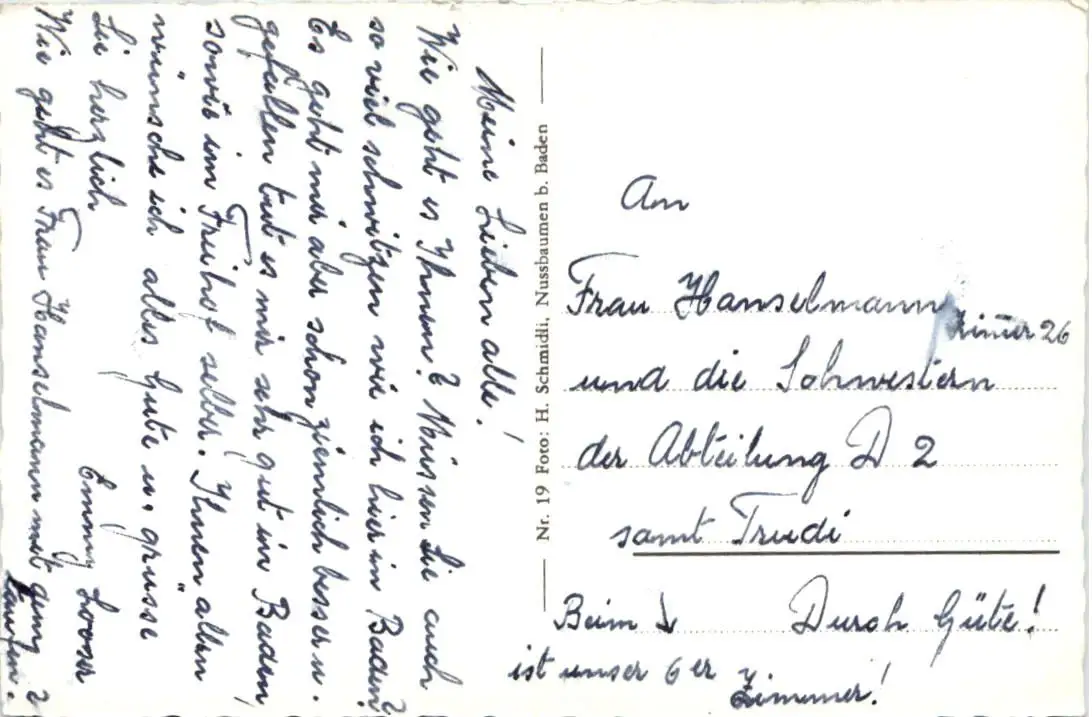 Meine Lieben alle!
Wie geht es Ihnen? Müssen Sie auch
so viel schwitzen wie ich hier in Baden?
Es geht mir aber schon ziemlich besser u.
gefallen tut es mir sehr gut im Baden
sowie im Freihof selber! Ihnen allen
wünsche ich alles Gute u. grüsse
Sie herzlich
Emmy Looser
Wie geht es Frau Hanselmann mit gung?
laufen?
Nr. 19 Foto: H. Schmidli, Nussbaumen b. Baden
An
Frau Hanselmann
Zimer 26
und die Schwestern
der Abteilung D 2
samt Trudi
Beim ↓ Durch Güte!
ist unser 6er
Zimmer!